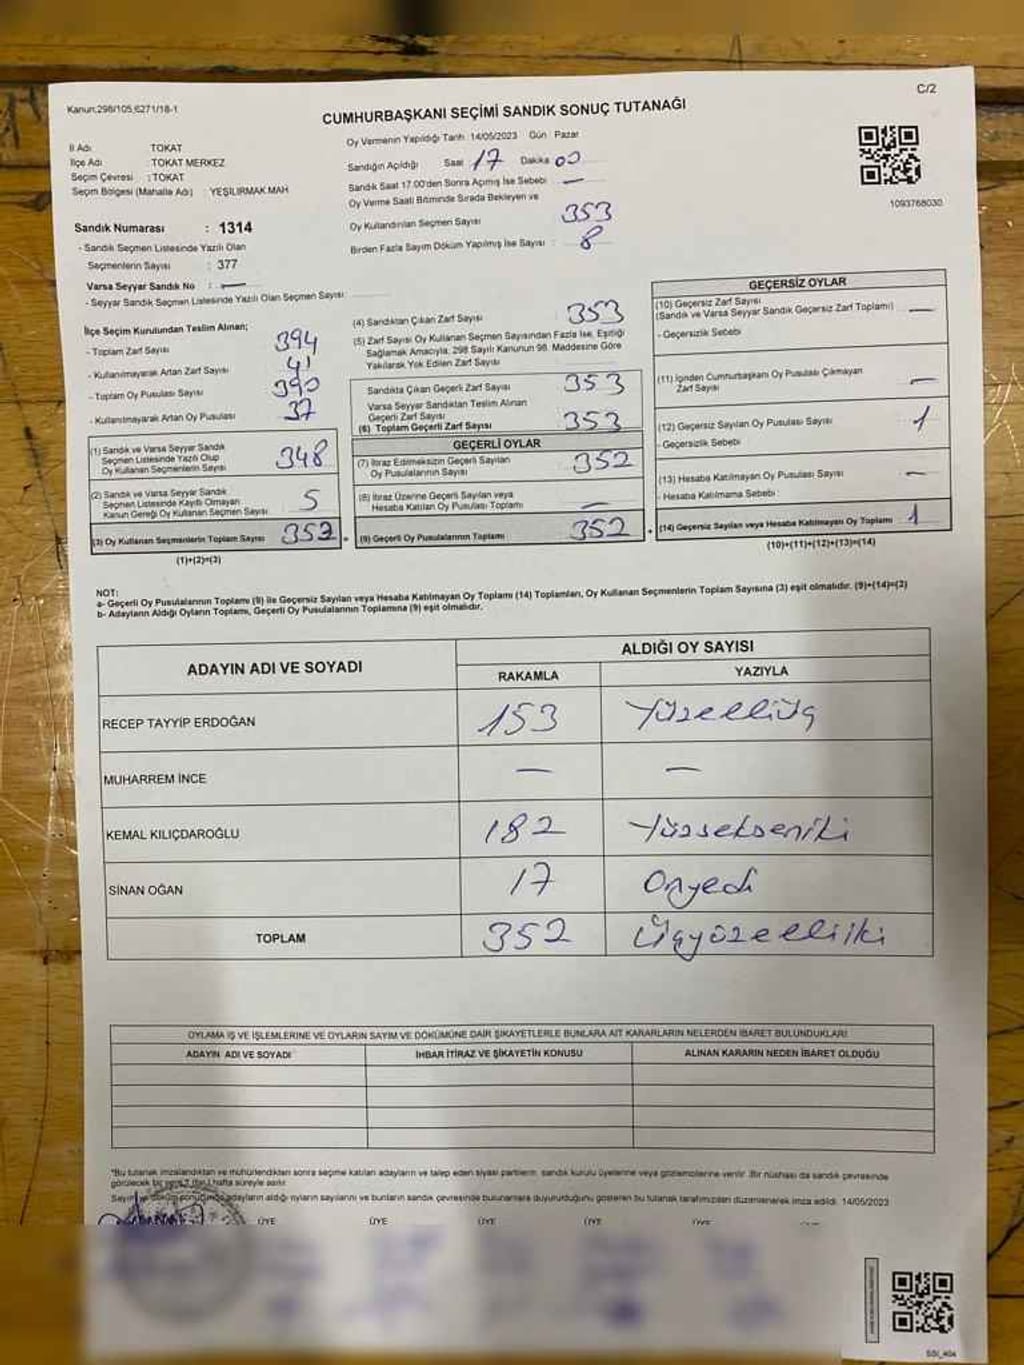 Kanun:298/105,6271/18-1
C/2
CUMHURBAŞKANI SEÇİMİ SANDIK SONUÇ TUTANAĞI
İl Adı : TOKAT
İlçe Adı : TOKAT MERKEZ
Seçim Çevresi : TOKAT
Seçim Bölgesi (Mahalle Adı) : YEŞİLIRMAK MAH
Sandık Numarası : 1314
- Sandık Seçmen Listesinde Yazılı Olan
Seçmenlerin Sayısı : 377
Varsa Seyyar Sandık No : —
- Seyyar Sandık Seçmen Listesinde Yazılı Olan Seçmen Sayısı:
Oy Vermenin Yapıldığı Tarih 14/05/2023 Gün Pazar
Sandığın Açıldığı Saat 17 Dakika 00
Sandık Saat 17.00'den Sonra Açılmış İse Sebebi : —
Oy Verme Saati Bitiminde Sırada Bekleyen ve
Oy Kullandırılan Seçmen Sayısı 353
Birden Fazla Sayım Döküm Yapılmış İse Sayısı : 8
1093768030
İlçe Seçim Kurulundan Teslim Alınan;
- Toplam Zarf Sayısı 394
- Kullanılmayarak Artan Zarf Sayısı 41
- Toplam Oy Pusulası Sayısı 390
- Kullanılmayarak Artan Oy Pusulası 37
(1) Sandık ve Varsa Seyyar Sandık
Seçmen Listesinde Yazılı Olup
Oy Kullanan Seçmenlerin Sayısı 348
(2) Sandık ve Varsa Seyyar Sandık
Seçmen Listesinde Kayıtlı Olmayan
Kanun Gereği Oy Kullanan Seçmen Sayısı 5
(3) Oy Kullanan Seçmenlerin Toplam Sayısı 353
(1)+(2)=(3)
(4) Sandıktan Çıkan Zarf Sayısı : 353
(5) Zarf Sayısı Oy Kullanan Seçmen Sayısından Fazla İse, Eşitliği
Sağlamak Amacıyla, 298 Sayılı Kanunun 98. Maddesine Göre
Yakılarak Yok Edilen Zarf Sayısı
Sandıkta Çıkan Geçerli Zarf Sayısı 353
Varsa Seyyar Sandıktan Teslim Alınan
Geçerli Zarf Sayısı
(6) Toplam Geçerli Zarf Sayısı 353
GEÇERLİ OYLAR
(7) İtiraz Edilmeksizin Geçerli Sayılan
Oy Pusulalarının Sayısı 352
(8) İtiraz Üzerine Geçerli Sayılan veya
Hesaba Katılan Oy Pusulası Toplamı —
(9) Geçerli Oy Pusulalarının Toplamı 352
GEÇERSİZ OYLAR
(10) Geçersiz Zarf Sayısı
(Sandık ve Varsa Seyyar Sandık Geçersiz Zarf Toplamı) —
- Geçersizlik Sebebi
(11) İçinden Cumhurbaşkanı Oy Pusulası Çıkmayan
Zarf Sayısı —
(12) Geçersiz Sayılan Oy Pusulası Sayısı 1
- Geçersizlik Sebebi
(13) Hesaba Katılmayan Oy Pusulası Sayısı —
- Hesaba Katılmama Sebebi :
(14) Geçersiz Sayılan veya Hesaba Katılmayan Oy Toplamı 1
(10)+(11)+(12)+(13)=(14)
NOT:
a- Geçerli Oy Pusulalarının Toplamı (9) ile Geçersiz Sayılan veya Hesaba Katılmayan Oy Toplamı (14) Toplamları, Oy Kullanan Seçmenlerin Toplam Sayısına (3) eşit olmalıdır. (9)+(14)=(3)
b- Adayların Aldığı Oyların Toplamı, Geçerli Oy Pusulalarının Toplamına (9) eşit olmalıdır.
ADAYIN ADI VE SOYADI ALDIĞI OY SAYISI
RAKAMLA YAZIYLA
RECEP TAYYİP ERDOĞAN 153 Yüzelliüç
MUHARREM İNCE — —
KEMAL KILIÇDAROĞLU 182 Yüzsekseniki
SİNAN OĞAN 17 Onyedi
TOPLAM 352 Üçyüzelliiki
OYLAMA İŞ VE İŞLEMLERİNE VE OYLARIN SAYIM VE DÖKÜMÜNE DAİR ŞİKAYETLERLE BUNLARA AİT KARARLARIN NELERDEN İBARET BULUNDUKLARI
ADAYIN ADI VE SOYADI İHBAR İTİRAZ VE ŞİKAYETİN KONUSU ALINAN KARARIN NEDEN İBARET OLDUĞU
*Bu tutanak imzalandıktan ve mühürlendikten sonra seçime katılan adayların ve talep eden siyasi partilerin, sandık kurulu üyelerine veya gözlemcilerine verilir. Bir nüshası da sandık çevresinde
görülecek bir yere 1 (bir) hafta süreyle asılır.
Sayım ve döküm sonucunda adayların aldığı oyların sayılarını ve bunların sandık çevresinde bulunanlara duyurulduğunu gösteren bu tutanak tarafımızdan düzenlenerek imza edildi. 14/05/2023
ÜYE ÜYE ÜYE ÜYE ÜYE ÜYE